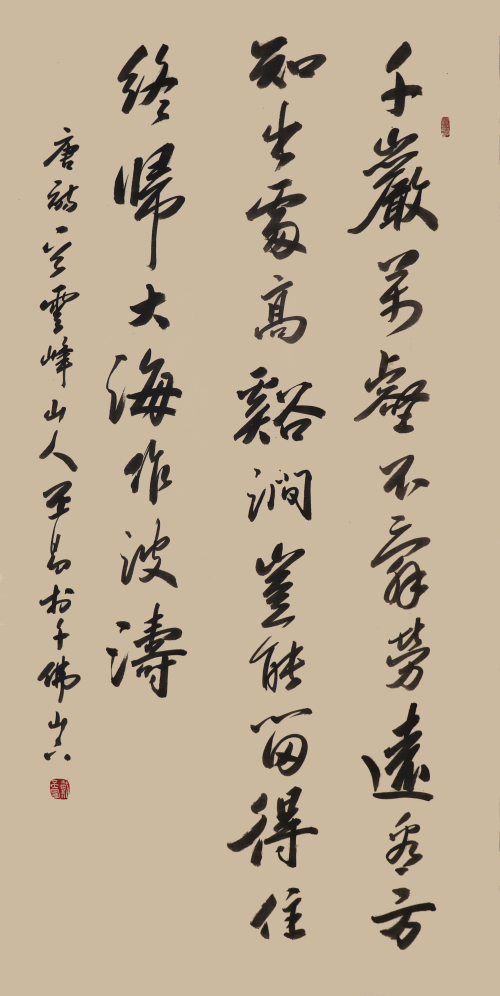 千巖萬壑不辭勞遠看方
知出處高谿澗豈能留得住
終歸大海作波濤
唐詩一首雲峰山人王易於千佛山下